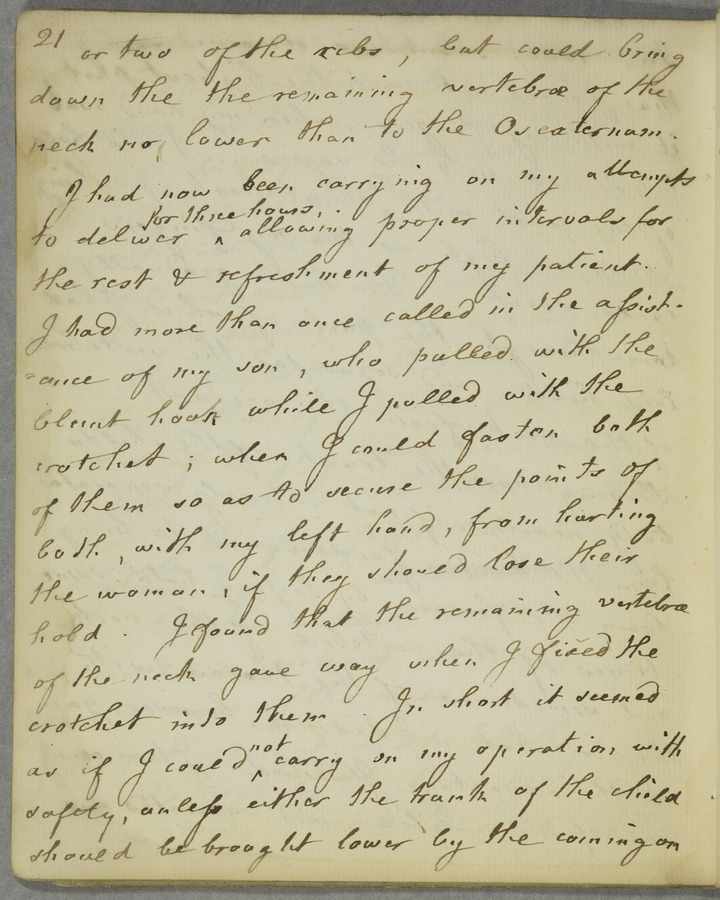 21
or two of the ribs, but could bring
down the the remaining vertebræ of the
neck no lower than to the Os externum.
I had now been carrying on my attempts
for three hours,
to deliver ^ allowing proper intervals for
the rest & refreshment of my patient.
I had more than once called in the assist-
=ance of my son, who pulled with the
blunt hook while I pulled with the
crotchet; when I could fasten both
of them so as to secure the points of
both, with my left hand, from hurting
the woman, if they should lose their
hold. I found that the remaining vertebræ
of the neck gave way when I fixed the
crotchet into them. In short it seemed
not
as if I could ^ carry on my operation with
safety, unless either the trunk of the child
should be brought lower by the coming on